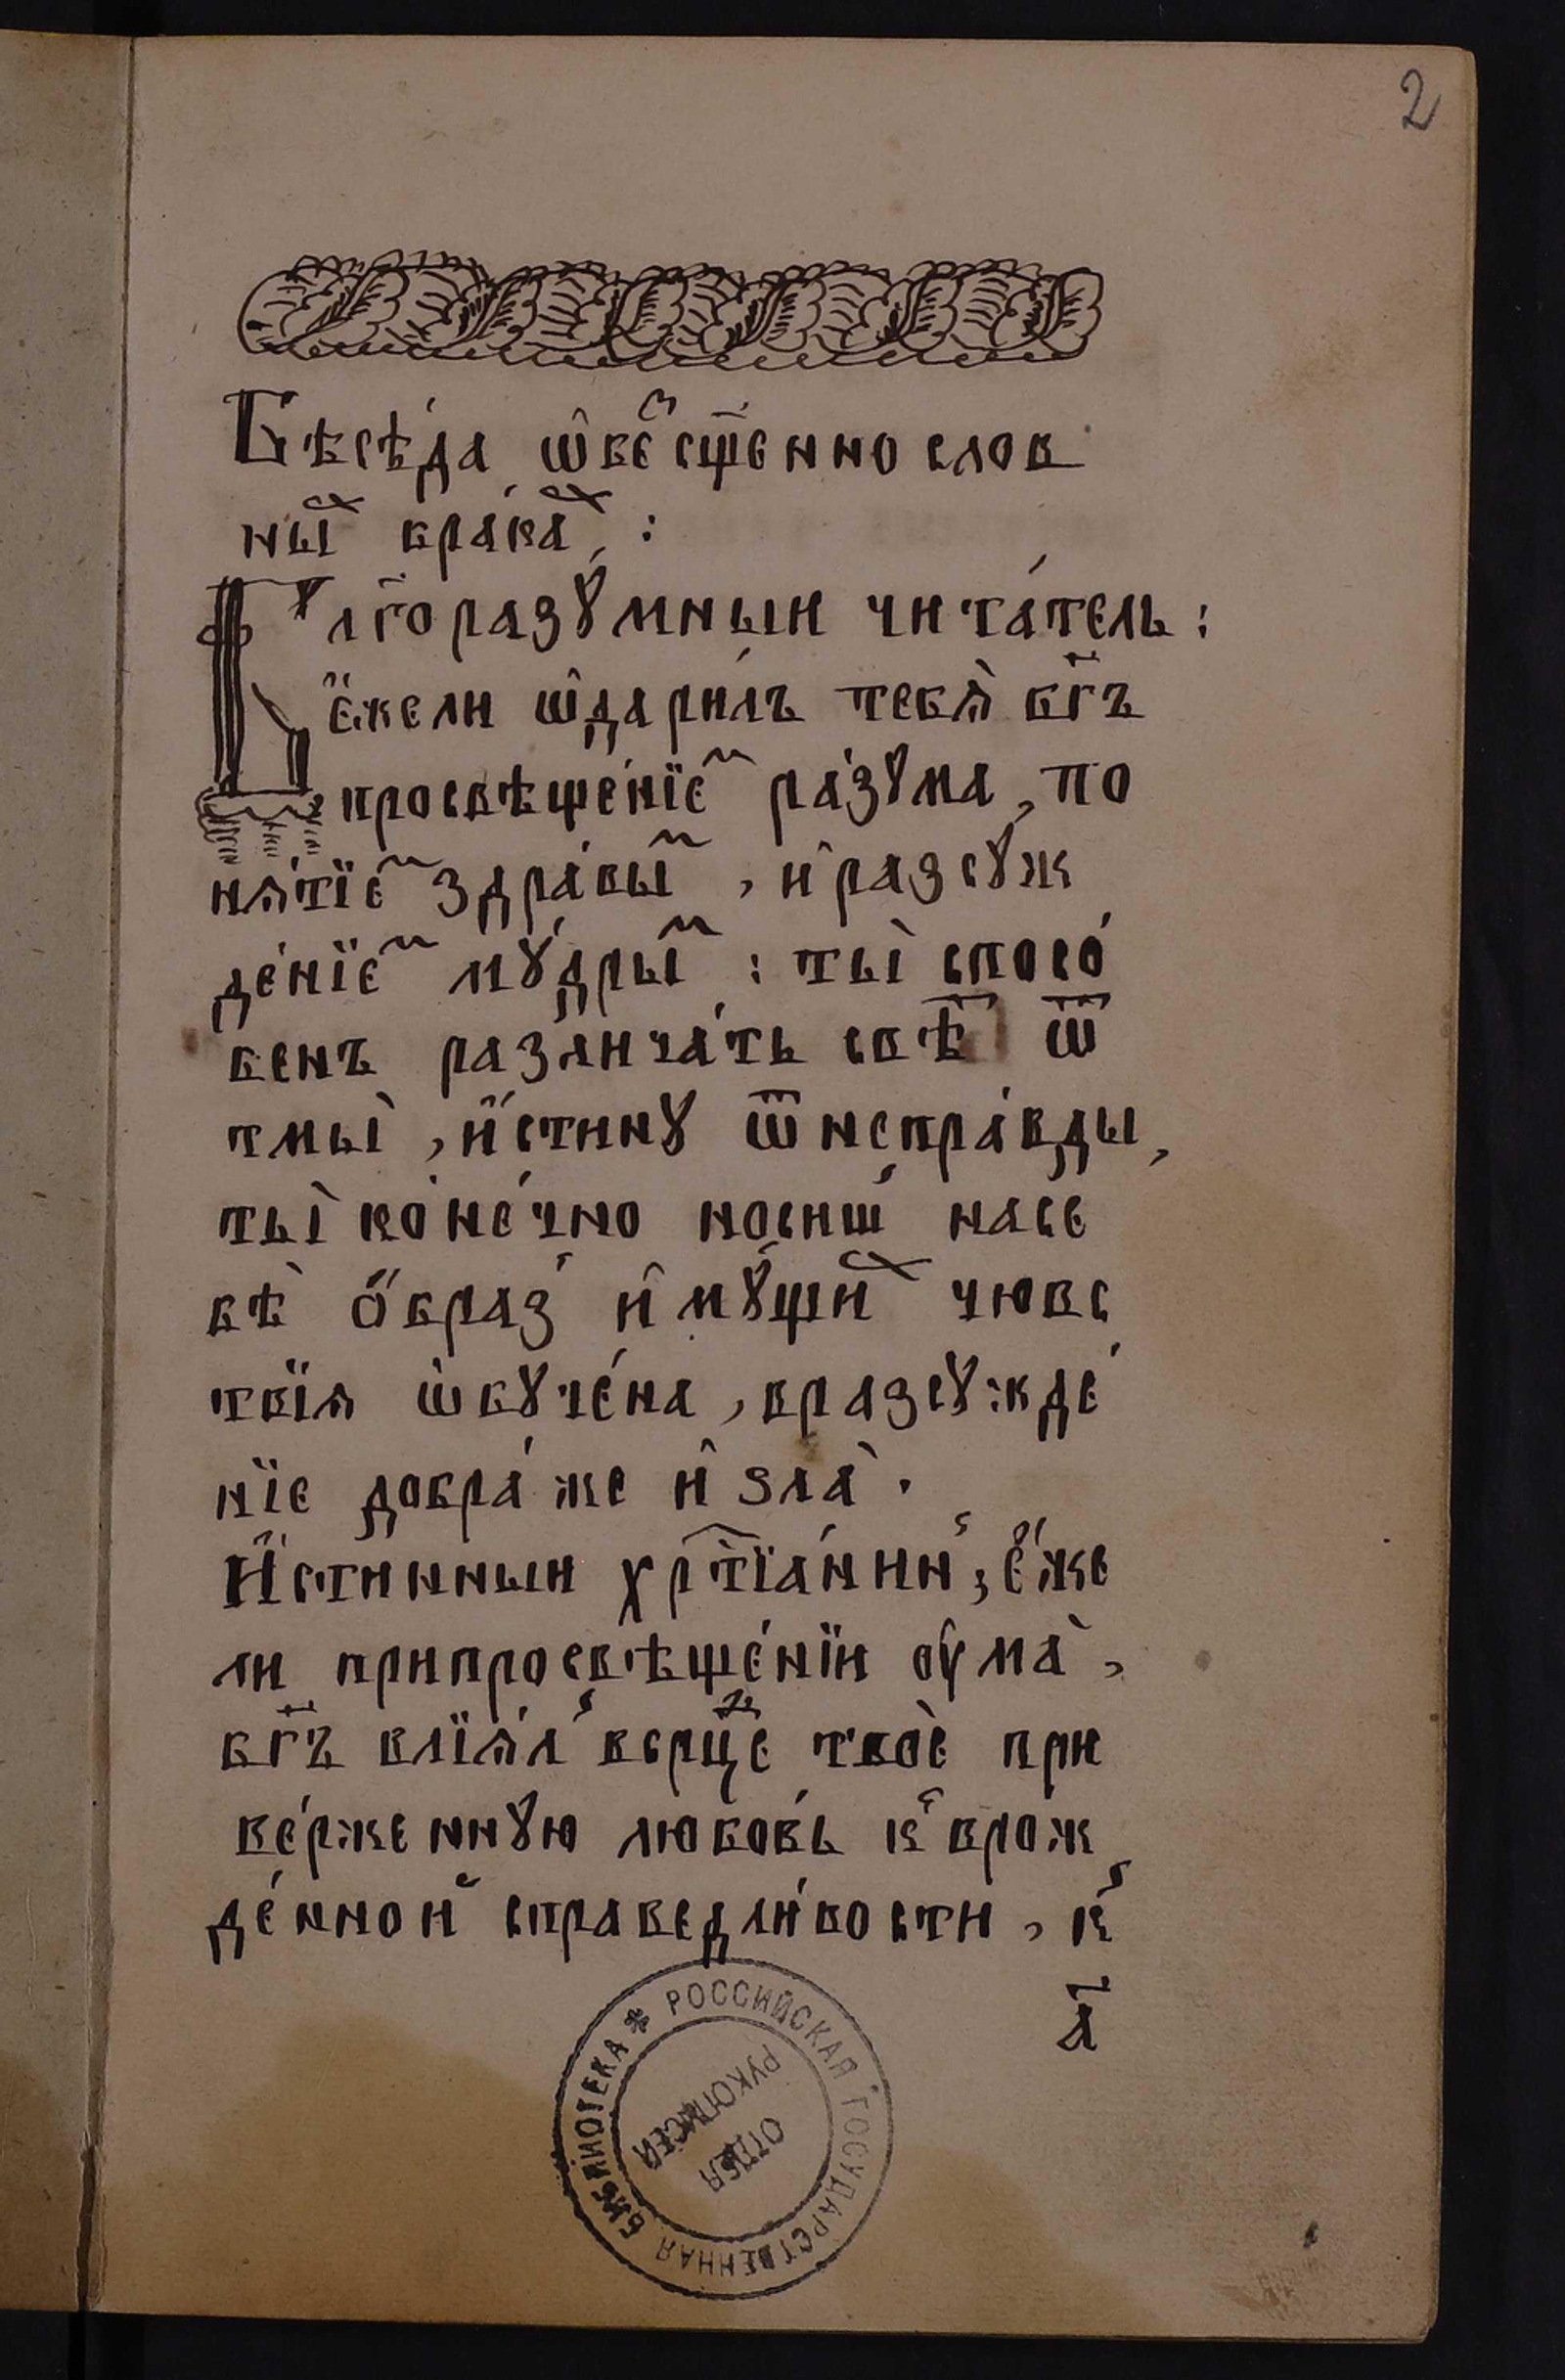 2
Бѣсѣ́да ѡ҆бес̾сщ҃еннослов
ны̑ⷯ бра́каⷯ :
Бл҃горазꙋ́мныи чита́тель :
є҆́жели ѡ҆дари́лъ тебѧ̀ бг҃ъ
просвѣще́нїеⷨ ра́зꙋма, по
нѧ́тїеⷨ здра́выⷨ, и҆ разсꙋж
де́нїеⷨ мꙋ́дрыⷨ : ты̀ спосо́
бенъ различа́ть свѣ́ ѿ
тмы̀, и҆́стинꙋ ѿ непра́вды,
ты̀ коне́чно носиш̾ на се
бѣ̀ ѻ҆́браз̾ и҆мꙋ́щиⷯ чювс
твїѧ ѡ҆бꙋче́на, в разсꙋжде́
нїе добра́ же и҆ ѕла̀.
И҆́стинныи хрⷭ҇тїа́нин̾, є҆́же
ли при просвѣще́нїи ᲂу҆ма̀,
бг҃ъ влїѧ́л̾ в срⷣце твоѐ при
ве́рженнꙋю любо́вь к̾ врож
де́нной справедли́вости, к̾
а҃
РОССИЙСКАЯ ГОСУДАРСТВЕННАЯ БИБЛИОТЕКА
ОТДЕЛ
РУКОПИСЕЙ